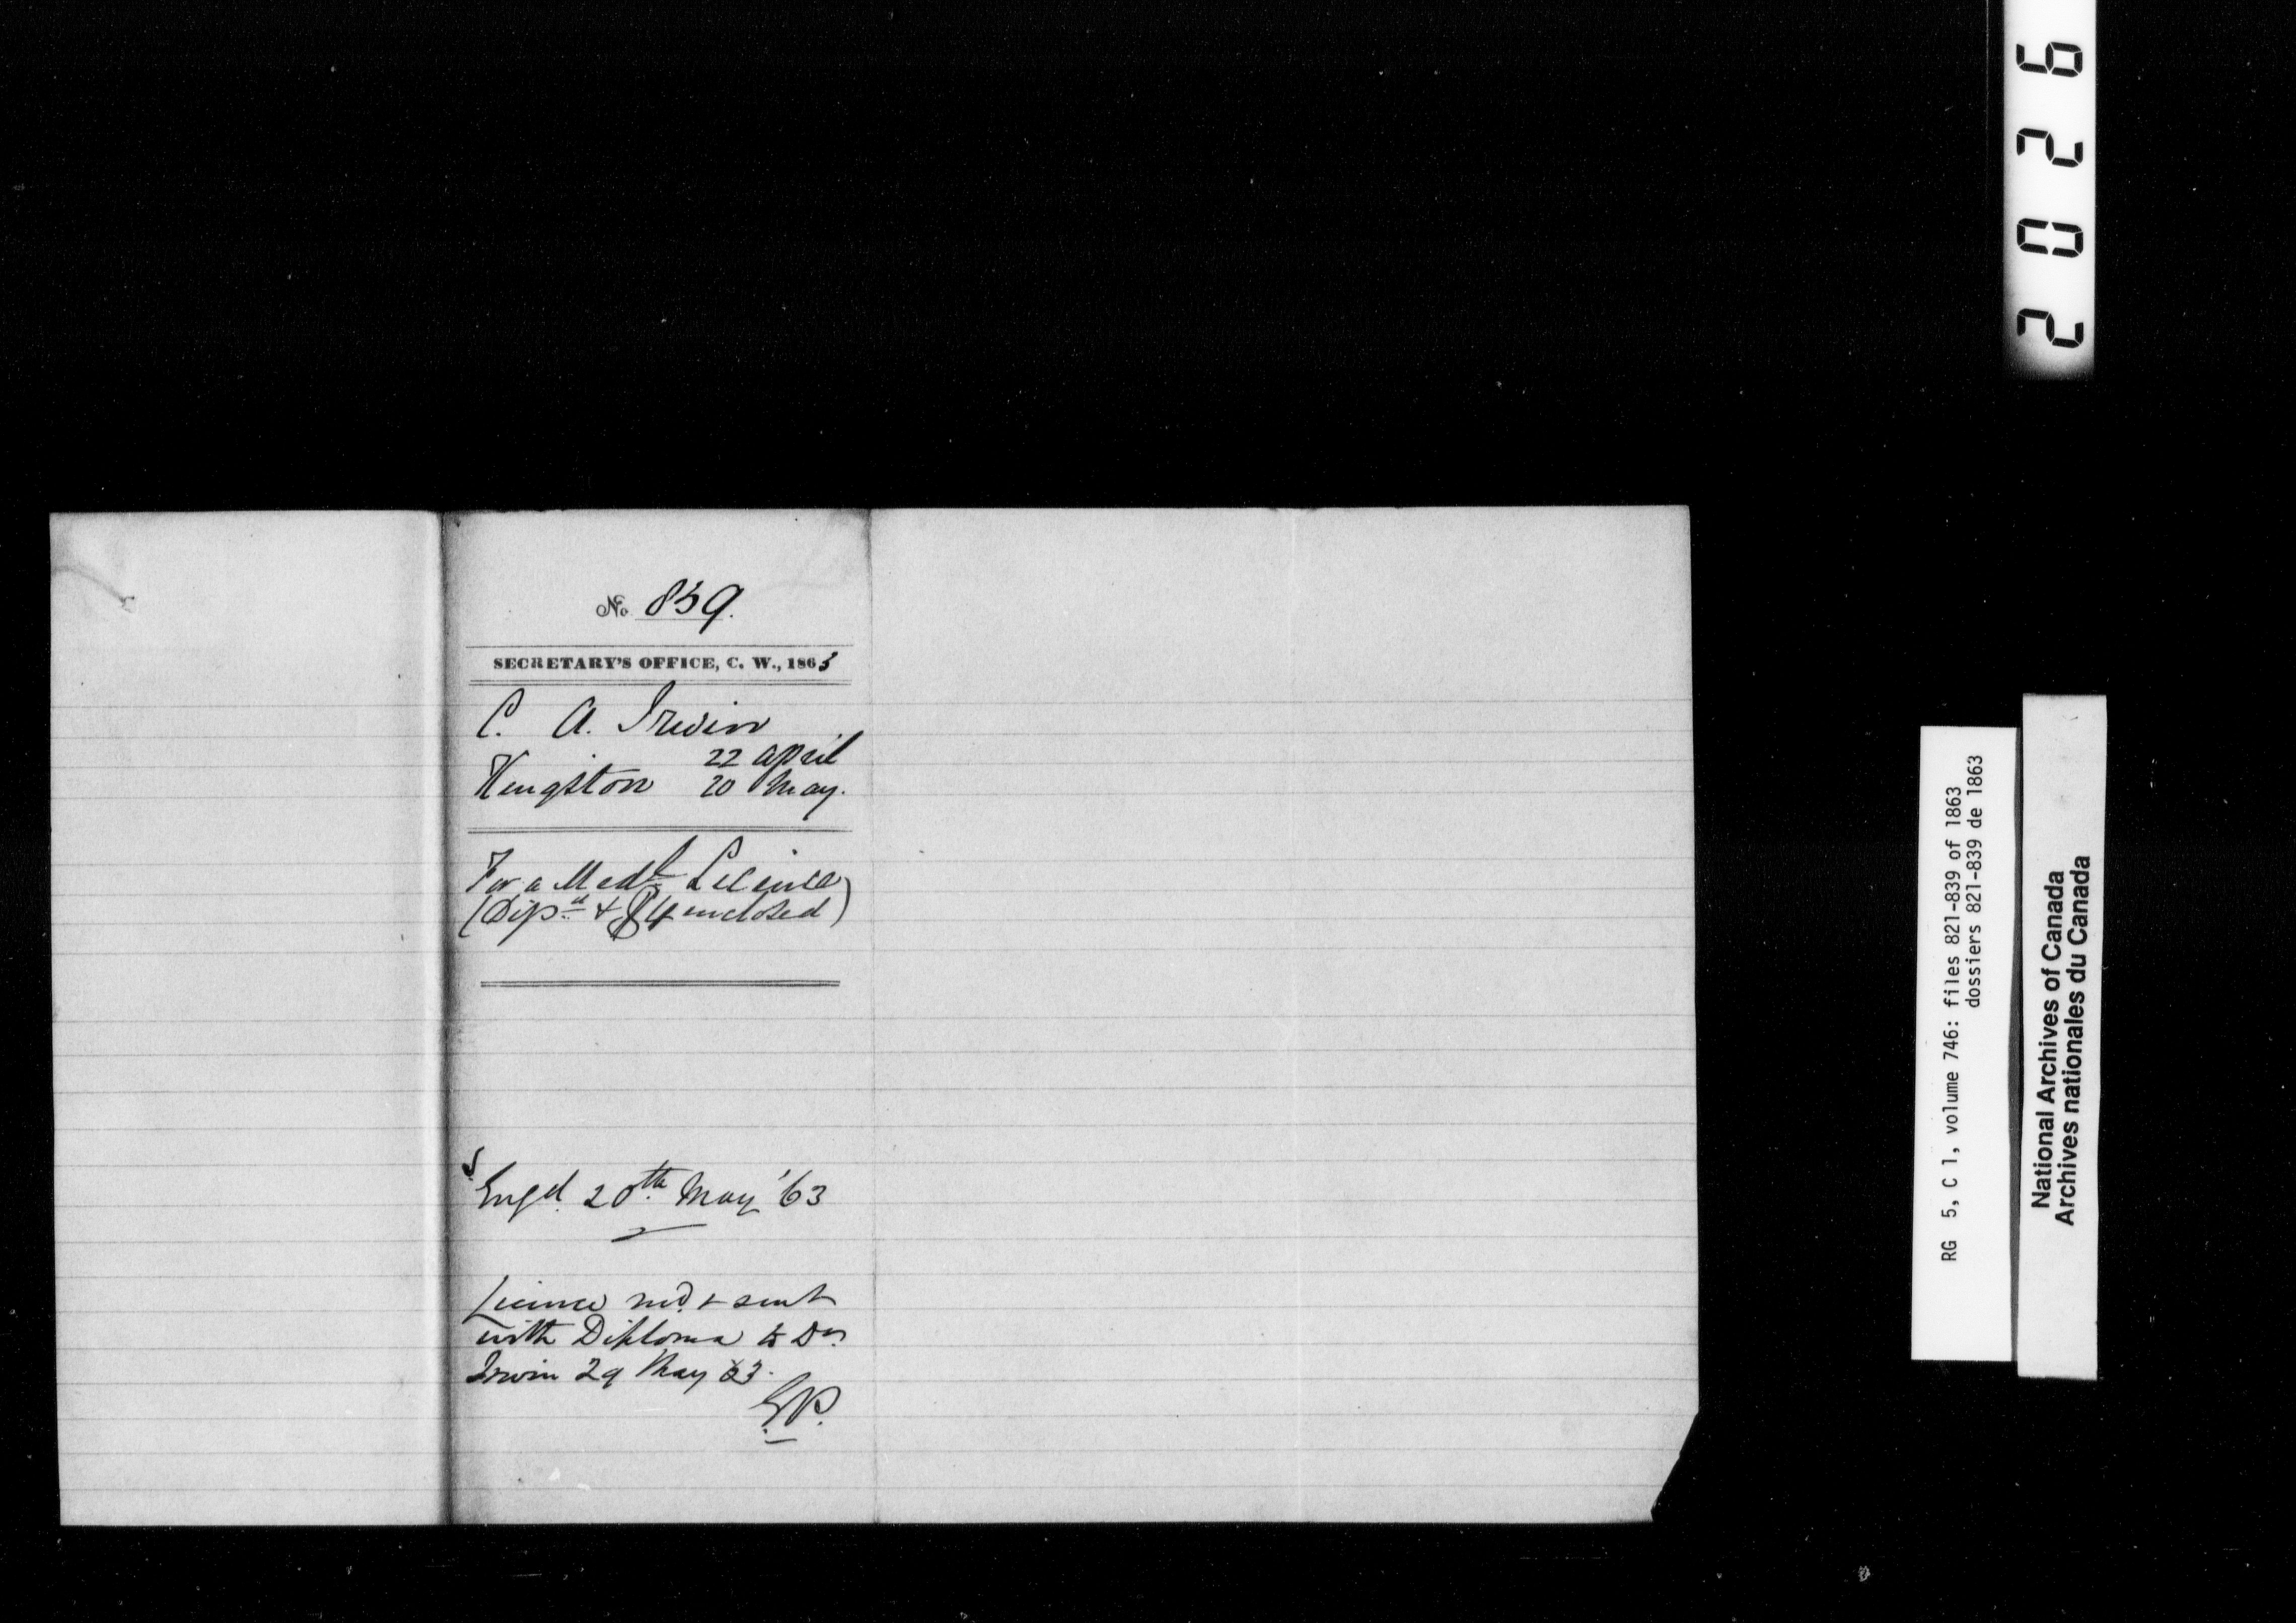 No. 839.
SECRETARY'S OFFICE, C. W., 1863
C. A. Irwin
22 April
Kingston 20 May.
For a Medl Licence
(Dipa & $4 enclosed)
Engd. 20th May '63
Licence recd. & sent
with Diploma to Dr
Irwin 29 May 63.
G.P.
2026
RG 5, C 1, volume 746: files 821-839 of 1863
dossiers 821-839 de 1863
National Archives of Canada
Archives nationales du Canada